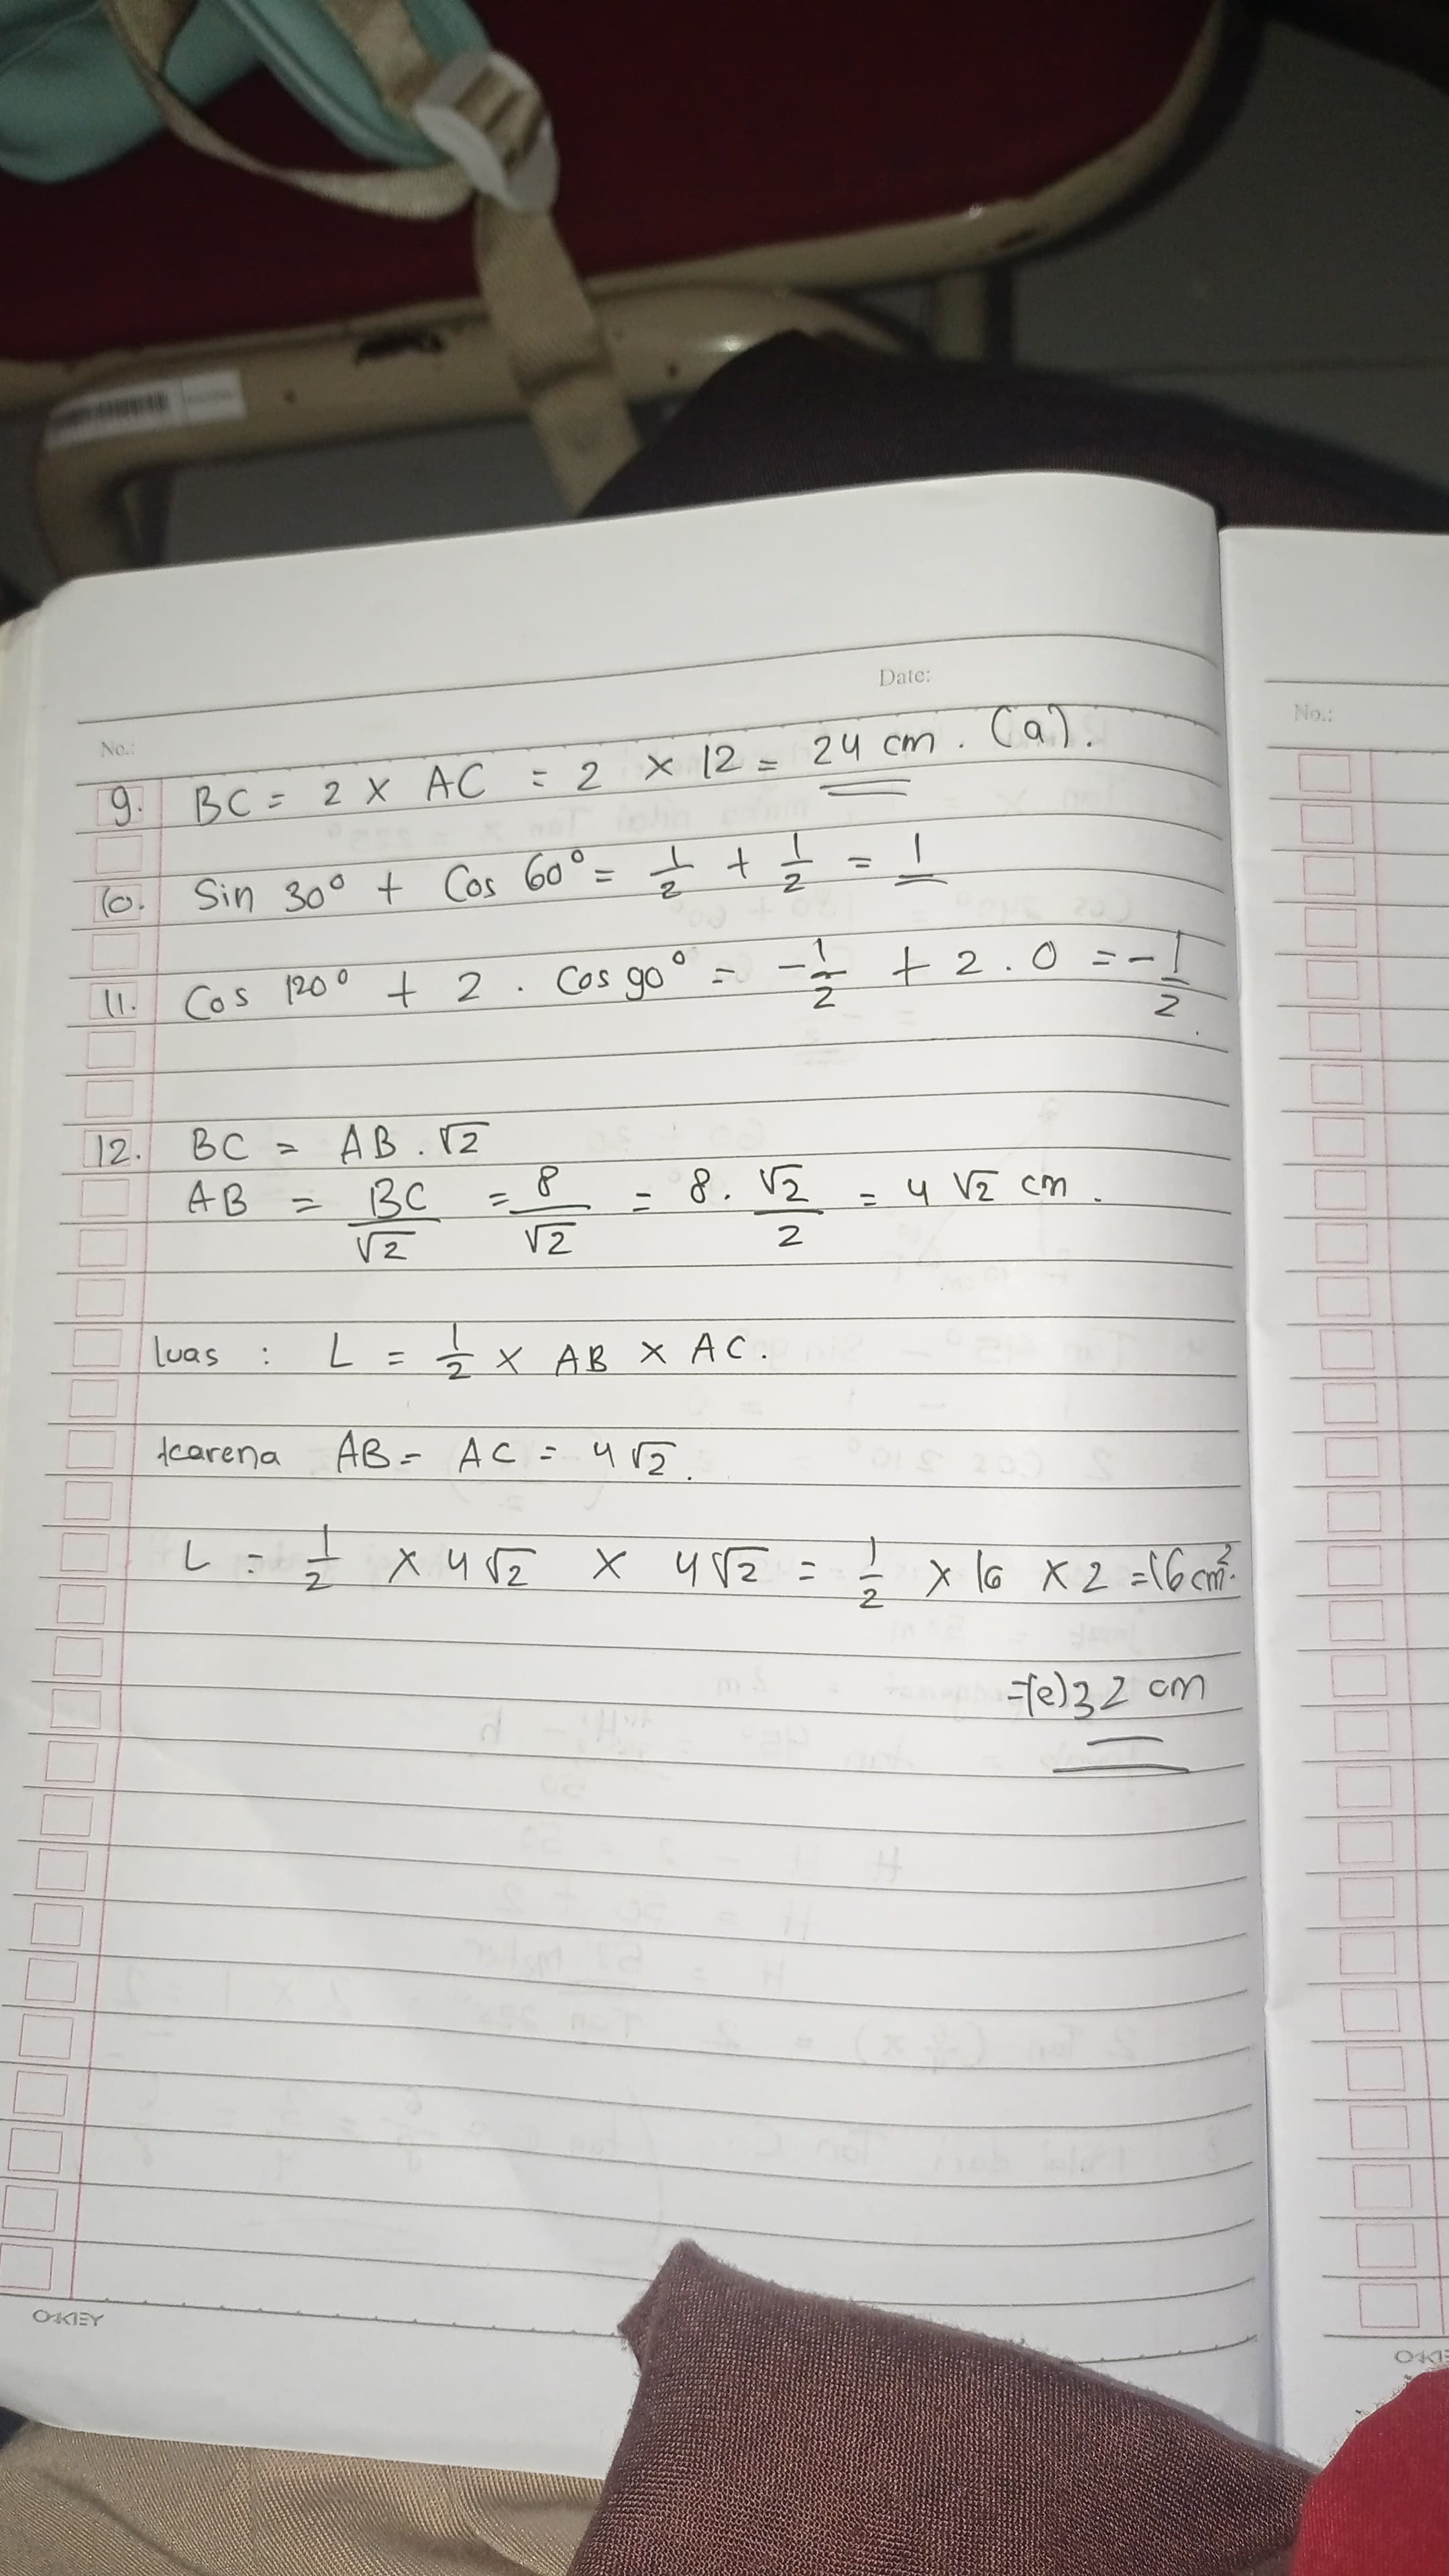 Date:
No.:
No.:
9. BC = 2 x AC = 2 x 12 = 24 cm. (a).
10. Sin 30° + Cos 60° = 1/2 + 1/2 = 1
11. Cos 120° + 2 . Cos 90° = -1/2 + 2 . 0 = -1/2.
12. BC = AB . √2
AB = BC/√2 = 8/√2 = 8 . √2/2 = 4 √2 cm.
luas : L = 1/2 x AB x AC.
karena AB = AC = 4√2.
L = 1/2 x 4√2 x 4√2 = 1/2 x 16 x 2 = 16 cm².
=(e) 32 cm
OKEY